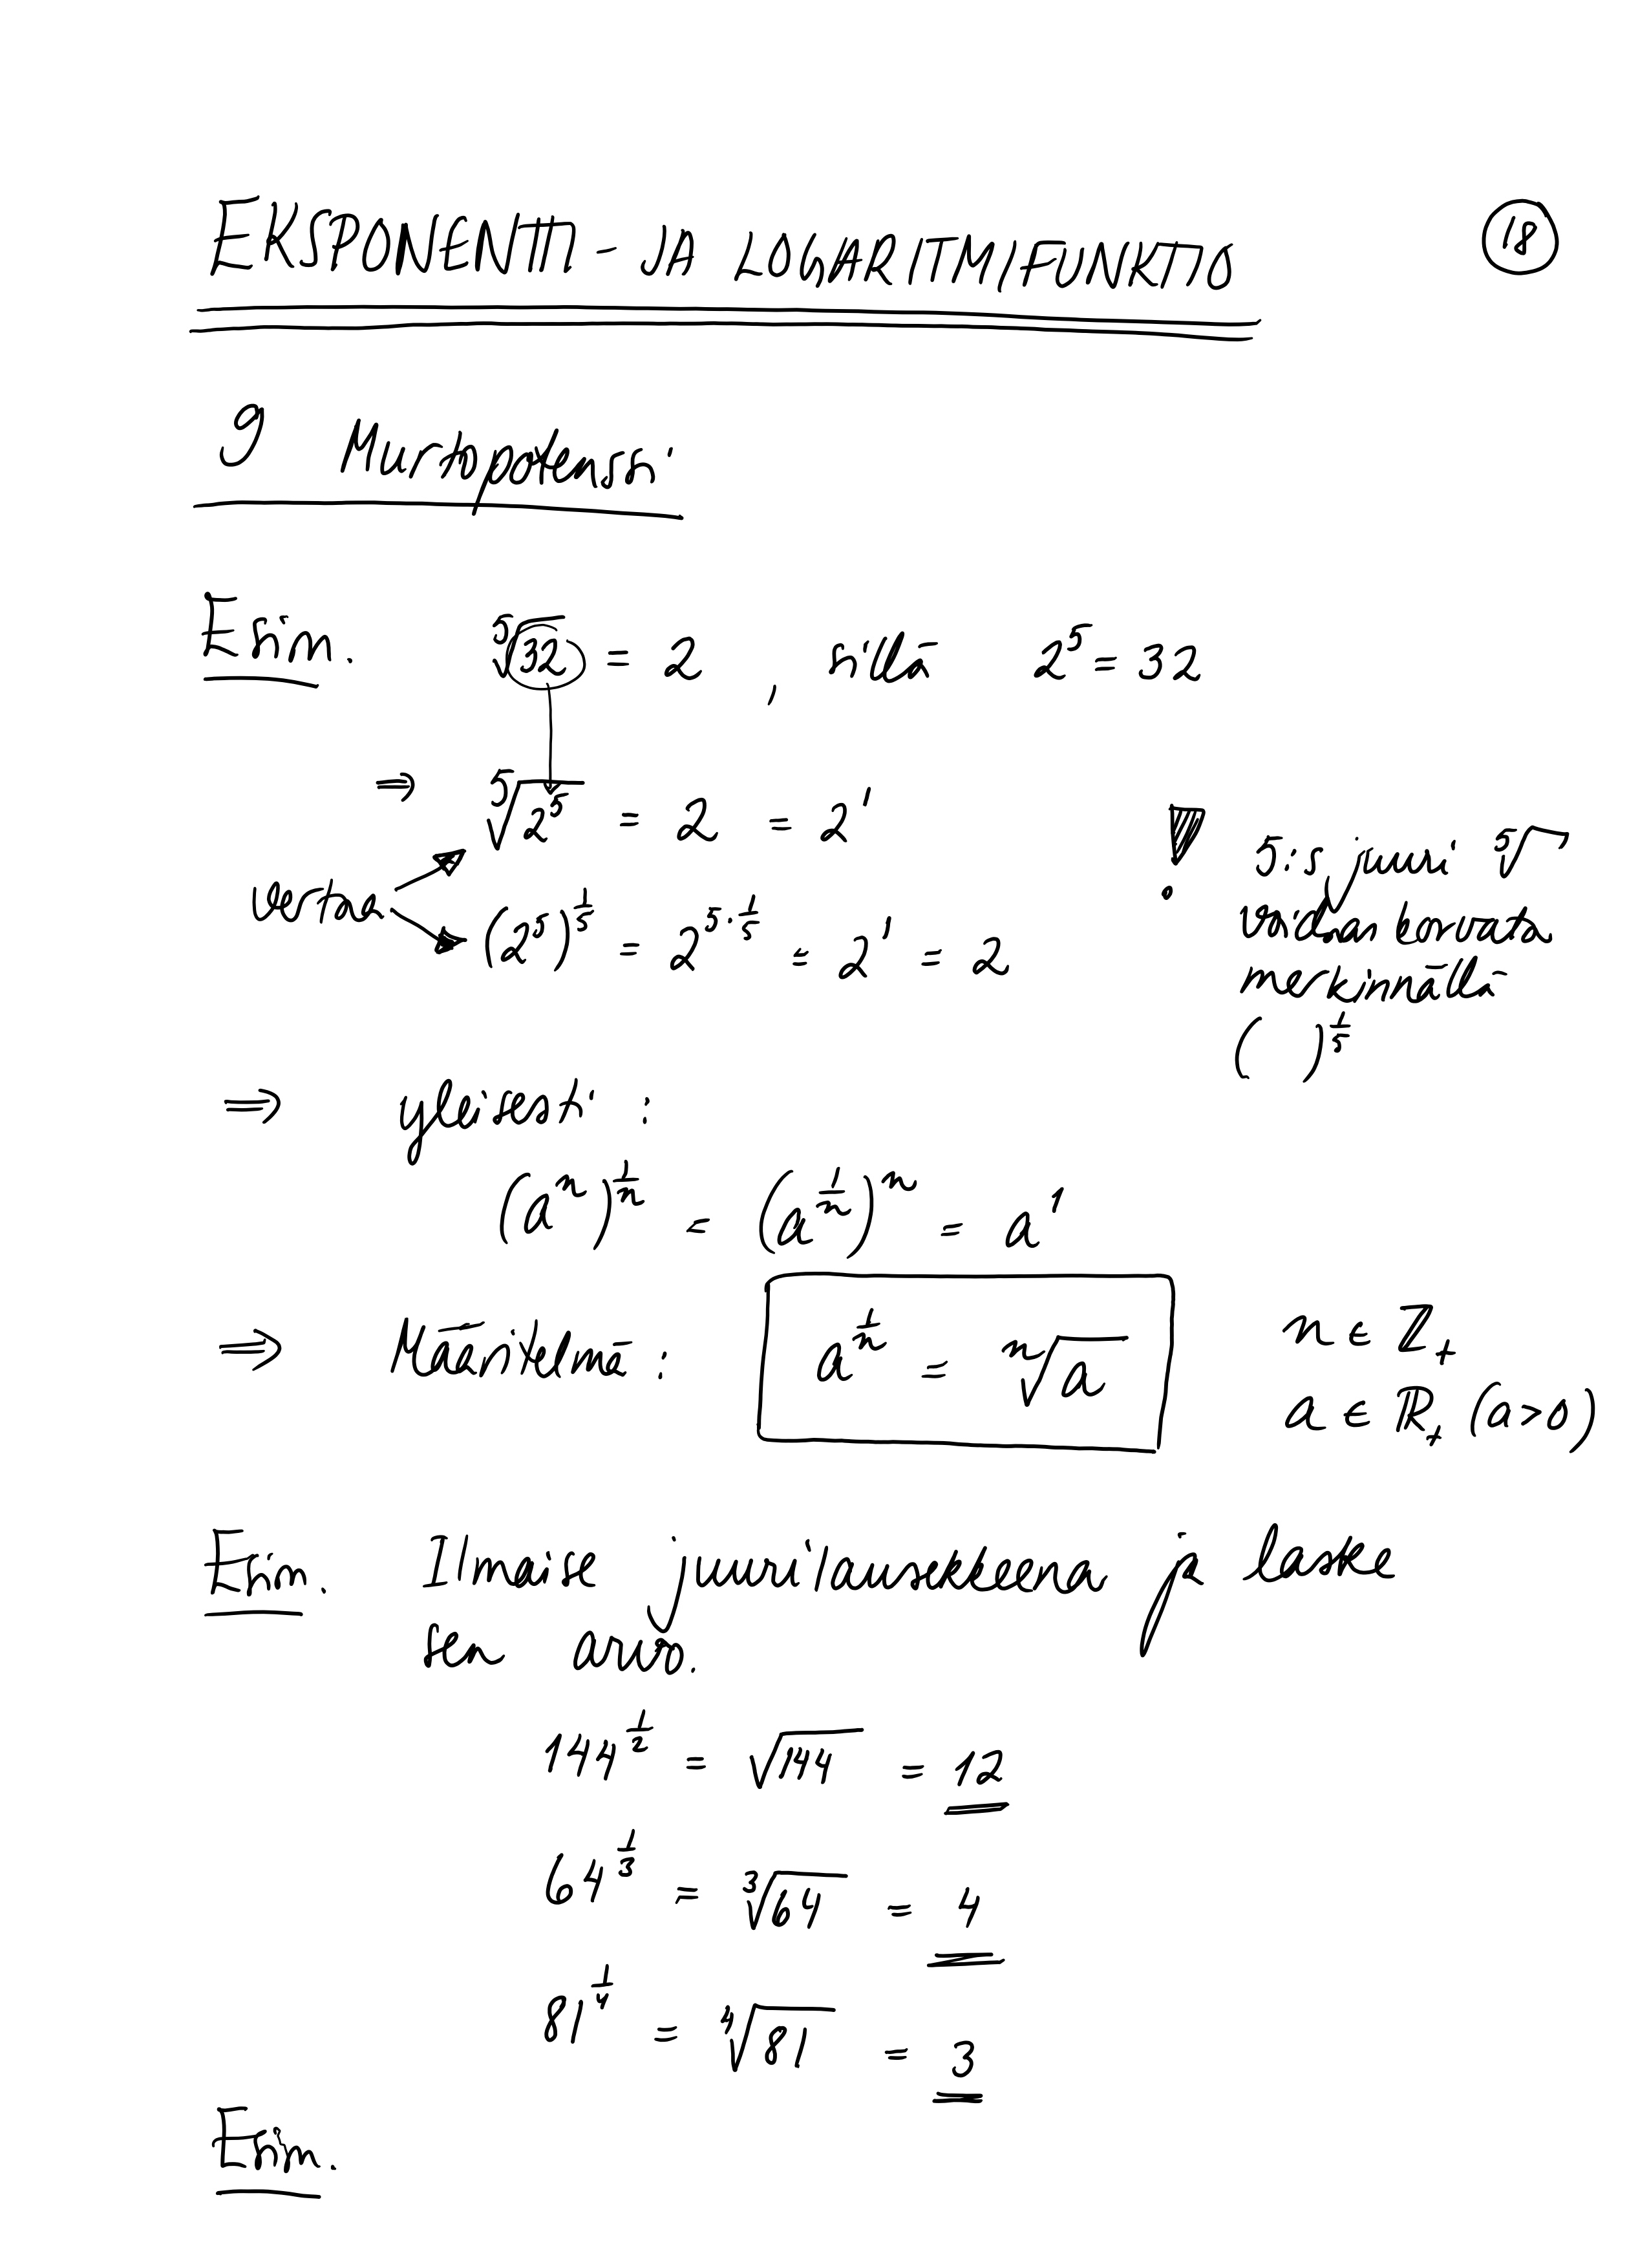 EKSPONENTTI- JA LOGARITMIFUNKTIO
18
9 Murtopotenssi
Esim. ⁵√32 = 2 , sillä 2⁵ = 32
⇒ ⁵√(2⁵) = 2 = 2¹
vertaa
(2⁵)^(1/5) = 2^(5·1/5) = 2¹ = 2
! 5:s juuri ⁵√
voidaan korvata
merkinnällä
( )^(1/5)
⇒ yleisesti :
(aⁿ)^(1/n) = (a^(1/n))ⁿ = a¹
⇒ Määritelmä : a^(1/n) = ⁿ√a
n ∈ ℤ₊
a ∈ ℝ₊ (a>0)
Esim. Ilmaise juurilausekkeena ja laske
sen arvo.
144^(1/2) = √144 = 12
64^(1/3) = ³√64 = 4
81^(1/4) = ⁴√81 = 3
Esim.